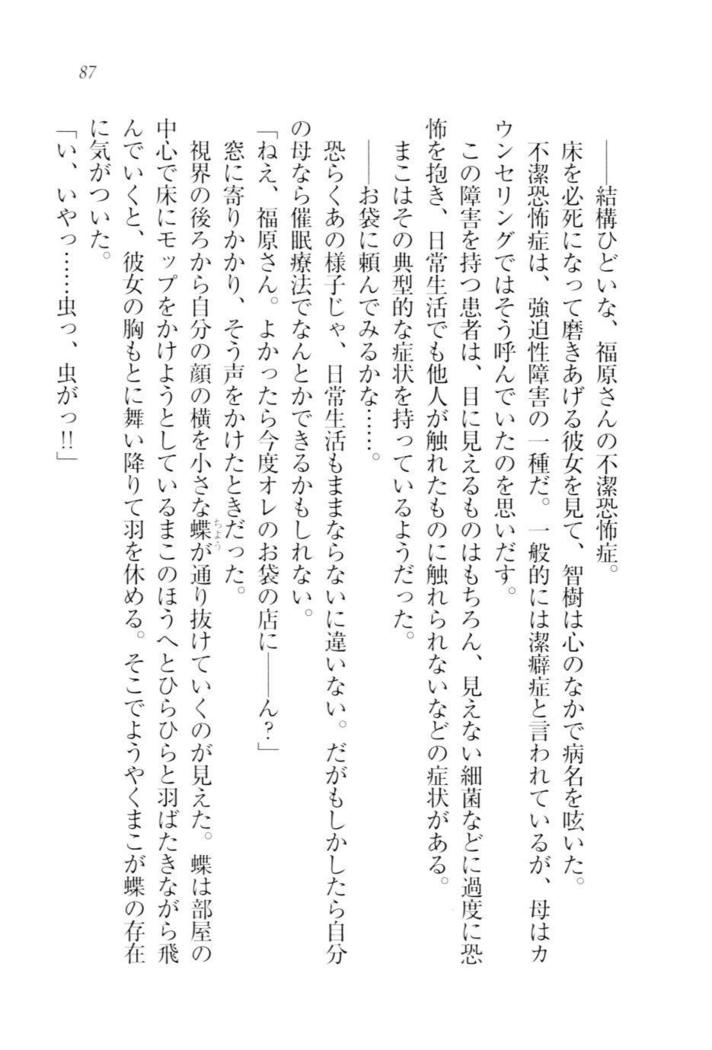 87
――結構ひどいな、福原さんの不潔恐怖症。
床を必死になって磨きあげる彼女を見て、智樹は心のなかで病名を呟いた。
不潔恐怖症は、強迫性障害の一種だ。一般的には潔癖症と言われているが、母はカ
ウンセリングではそう呼んでいたのを思いだす。
この障害を持つ患者は、目に見えるものはもちろん、見えない細菌などに過度に恐
怖を抱き、日常生活でも他人が触れたものに触れられないなどの症状がある。
まこはその典型的な症状を持っているようだった。
――お袋に頼んでみるかな……。
恐らくあの様子じゃ、日常生活もままならないに違いない。だがもしかしたら自分
の母なら催眠療法でなんとかできるかもしれない。
「ねえ、福原さん。よかったら今度オレのお袋の店に――ん？」
窓に寄りかかり、そう声をかけたときだった。
視界の後ろから自分の顔の横を小さな蝶ちょうが通り抜けていくのが見えた。蝶は部屋の
中心で床にモップをかけようとしているまこのほうへとひらひらと羽ばたきながら飛
んでいくと、彼女の胸もとに舞い降りて羽を休める。そこでようやくまこが蝶の存在
に気がついた。
「い、いやっ……虫っ、虫がっ!!」